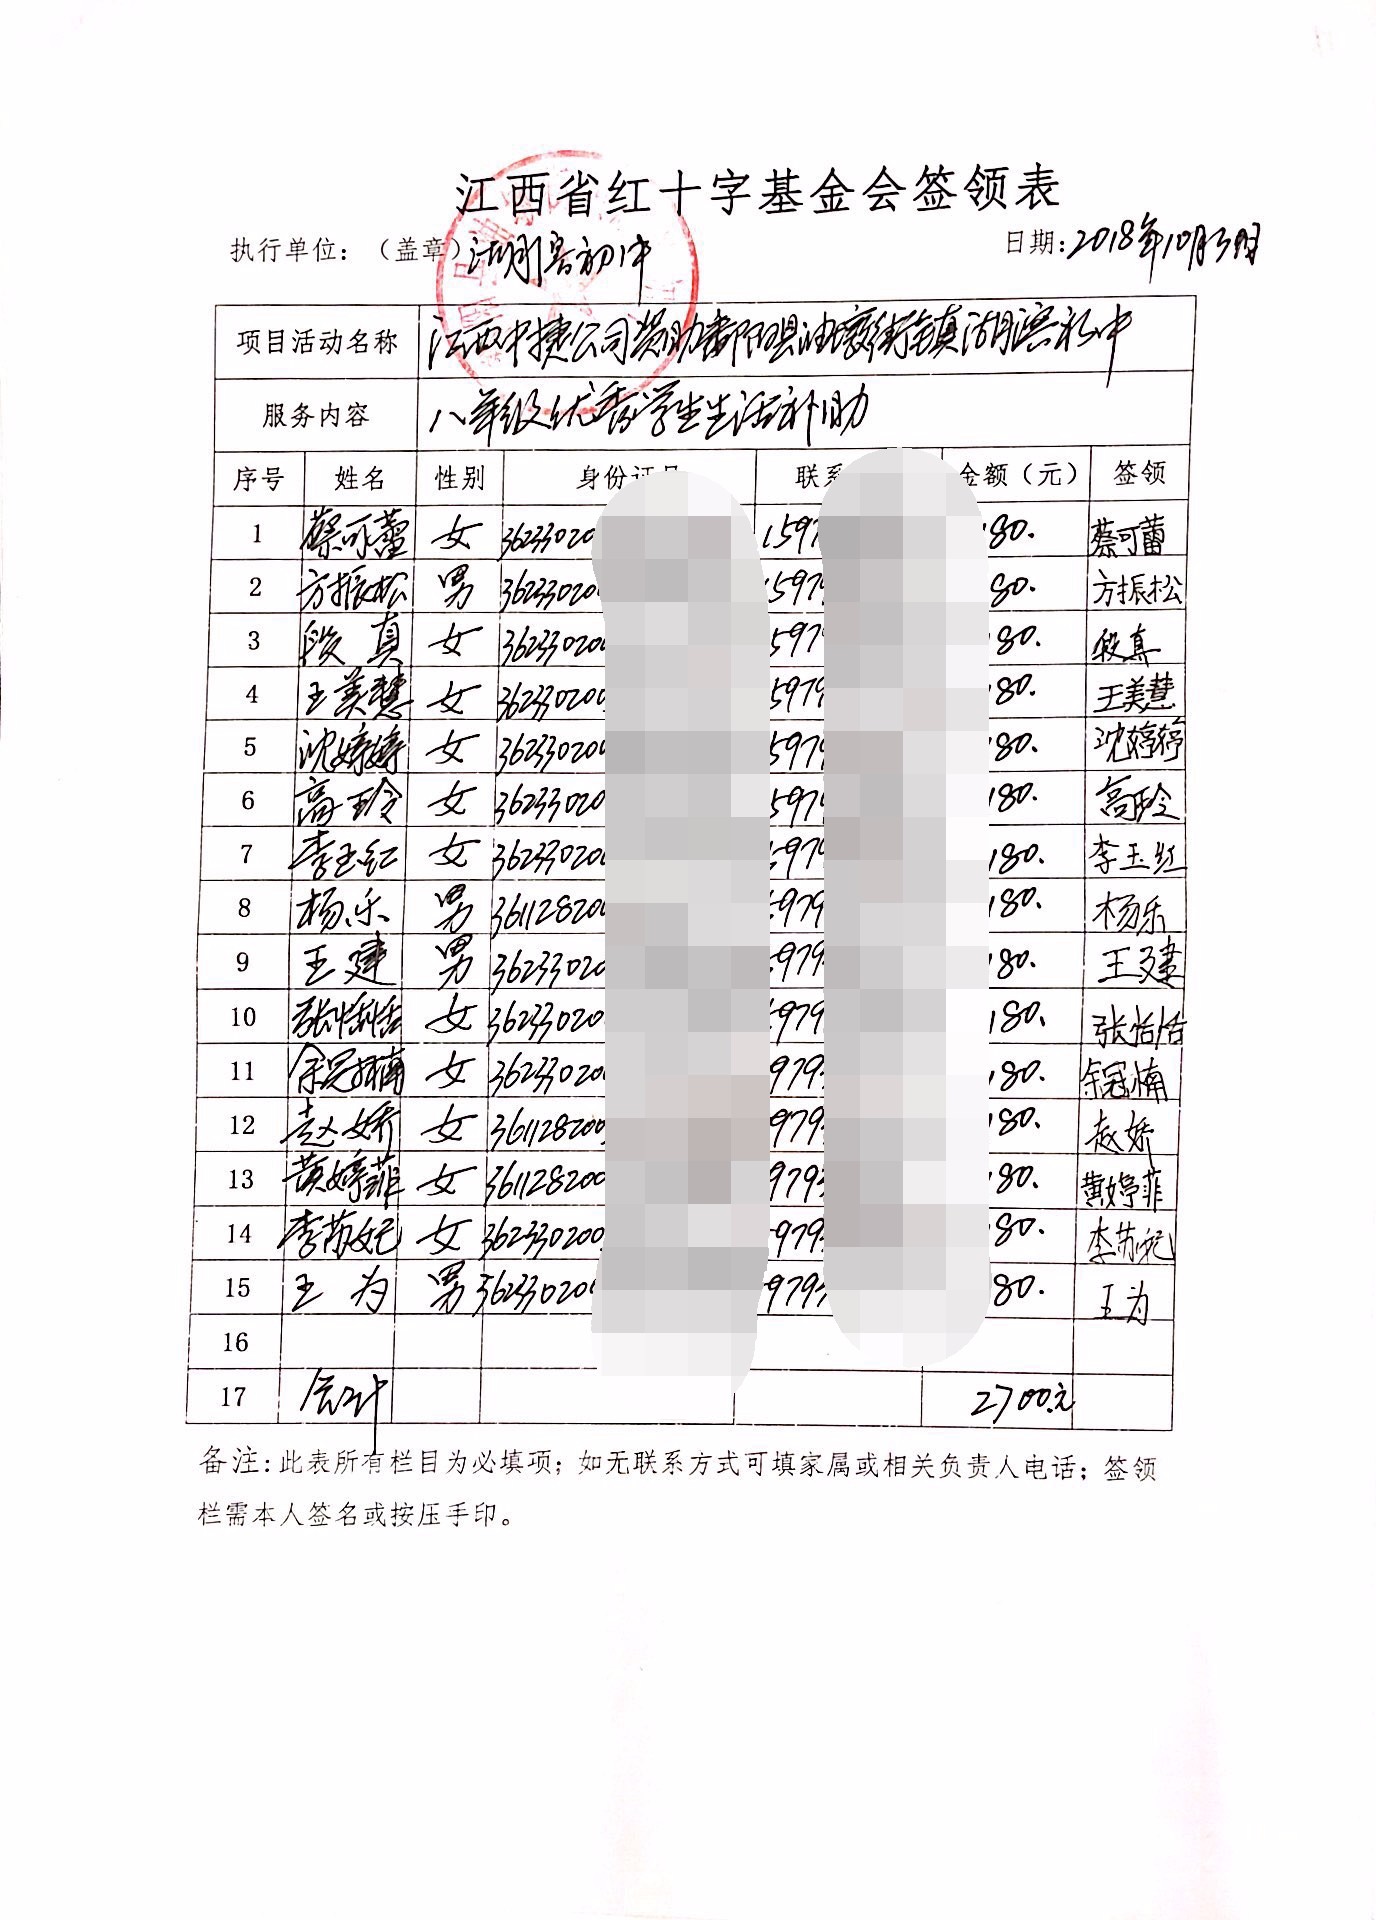 江西省红十字基金会签领表
执行单位：（盖章）湖滨初中 日期：2018年10月
项目活动名称 江西中捷公司资助鄱阳县油墩街镇湖滨初中
服务内容 八年级优秀学生生活补助
序号 姓名 性别 身份证号 联系 金额（元） 签领
1 蔡可蕾 女 362330200 1597 180. 蔡可蕾
2 方振松 男 362330200 1597 180. 方振松
3 段真 女 362330200 597 180. 段真
4 王美慧 女 362330200 5979 180. 王美慧
5 沈婷婷 女 362330200 5979 180. 沈婷婷
6 高玲 女 362330200 5979 180. 高玲
7 李玉红 女 362330200 979 180. 李玉红
8 杨乐 男 361128200 979 180. 杨乐
9 王建 男 36233020 979 180. 王建
10 张恬恬 女 36233020 979 180. 张恬恬
11 余冠楠 女 362330200 979 180. 余冠楠
12 赵娇 女 361128200 979 180. 赵娇
13 黄婷菲 女 361128200 979 180. 黄婷菲
14 李苏妃 女 362330200 979 180. 李苏妃
15 王为 男 362330200 979 180. 王为
16
17 合计 2700元
备注：此表所有栏目为必填项；如无联系方式可填家属或相关负责人电话；签领
栏需本人签名或按压手印。